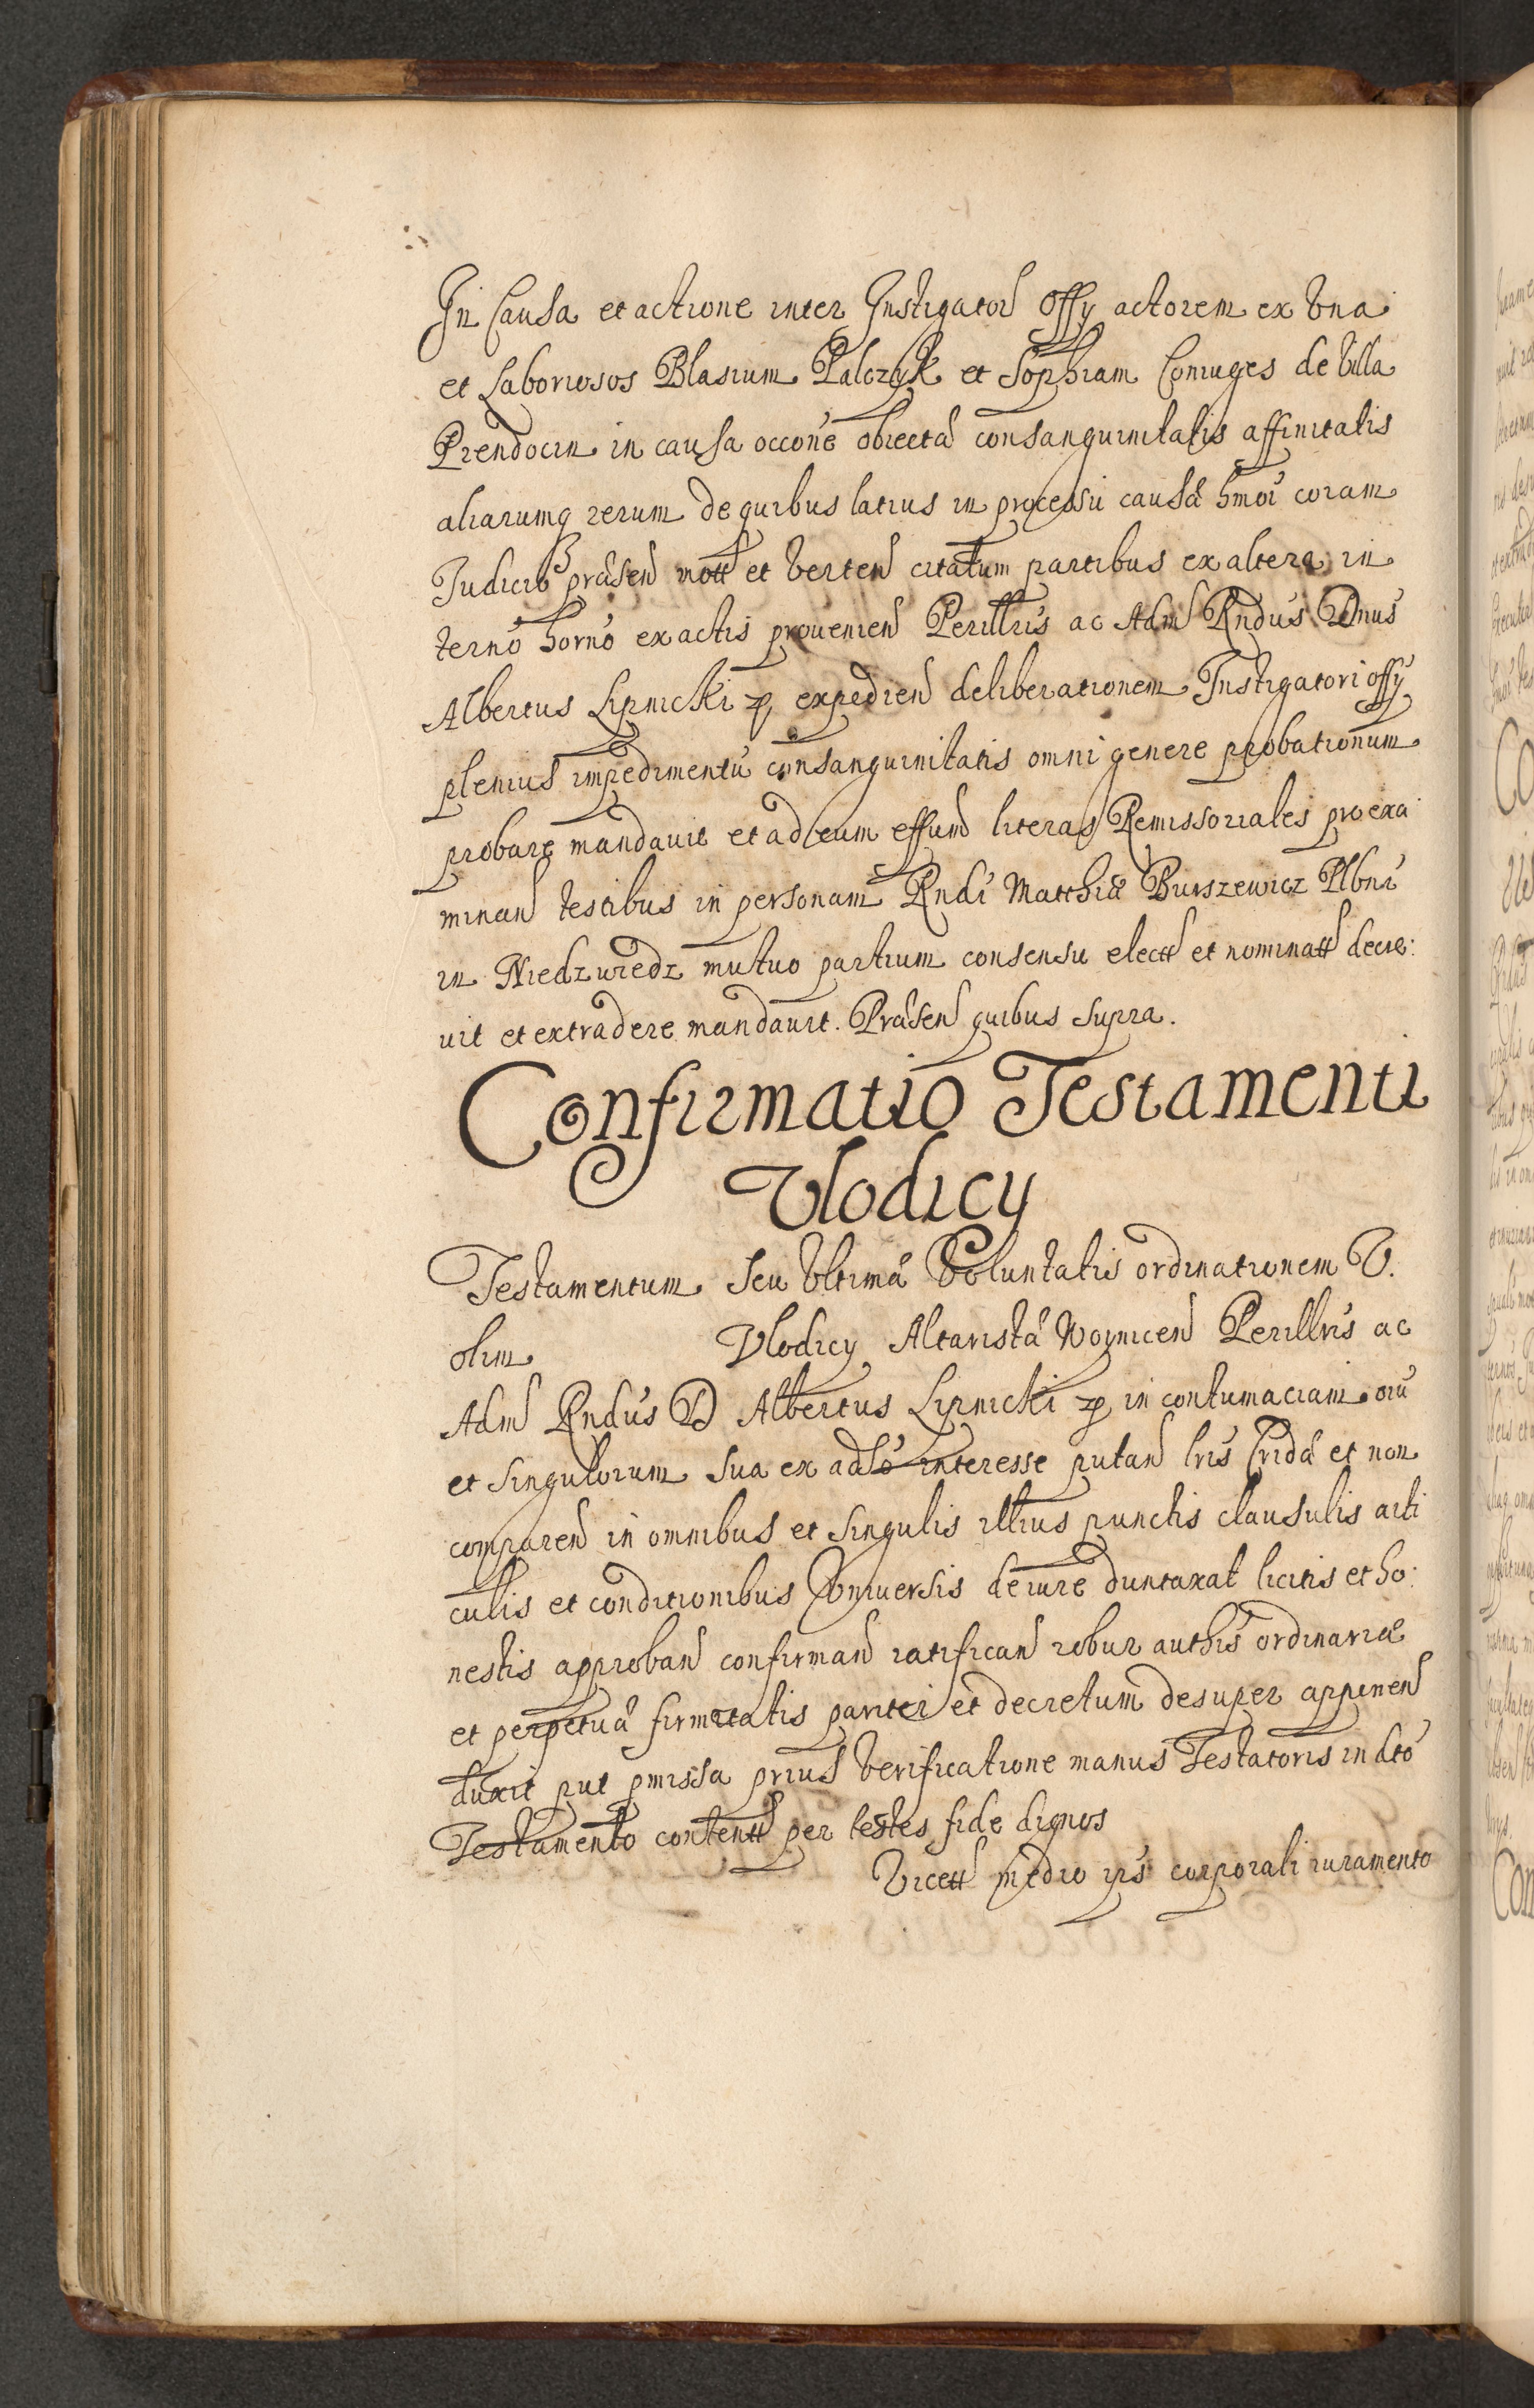 In Causa et actione inter Instigatorē Offy actorem ex Vna
et Laboriosos Blasium Palczyk et Sophiam Coniuges de Villa
Prendocin in causa occōne obiectæ consanguinitatis affinitatis
aliarumq rerum de quibus latius in processu causæ hmōi coram
Iudicib9 præsen mott et verten citatum partibus ex altera in
termō hornō ex actis prouenien Perillris ac Adm Rndus Dnus
Albertus Lipnicki p expedien deliberationem Instigatori offy
plenius impedimentū consanguinitatis omni genere probationum
probare mandauit et ad eum effum literas Remissoriales pro exa
minan testibus in personam Rndi Matthiæ Burszewicz Plbni
in Niedzwiedz mutuo partium consensu electt et nominatt decre:
uit et extradere mandauit. Præsen quibus supra.
Confirmatio Testamenti
Vlodicy
Testamentum seu Vltimæ Voluntatis ordinationem V.
olim Vlodicy Altaristæ Woynicen Perillris ac
Adm Rndus D Albertus Lipnicki p in contumaciam oiū
et singulorum sua ex adsō interesse putan lris Cridæ et non
comparen in omnibus et singulis illius punctis clausulis arti
culis et conditionibus Vniuersis de iure duntaxat licitis et ho:
nestis approban confirman ratifican robur authis ordinariæ
et perpetuæ firmitatis pariter et decretum desuper apponen
duxit put pmissa prius Verificatione manus Testatoris in dctō
Testamento contentt per testes fide dignos
Vicett medio ips corporali iuramento